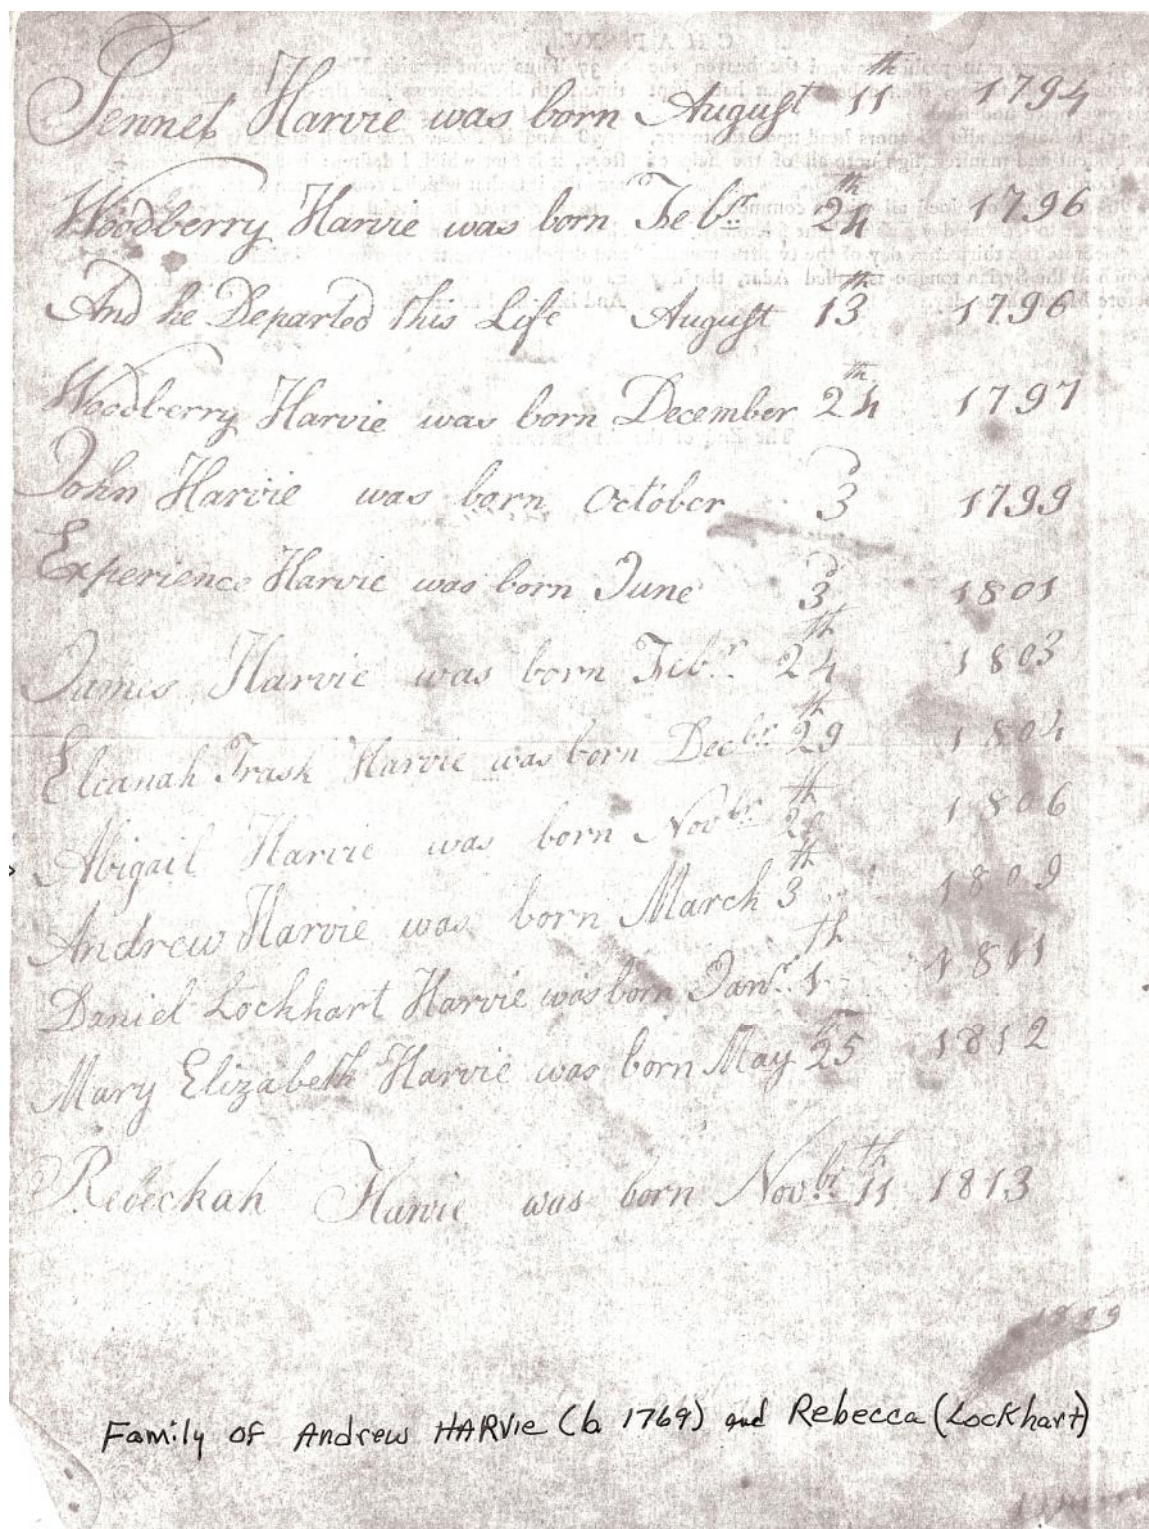 Jennet Harvie was born August 11th 1794
Woodberry Harvie was born Febr. 24th 1796
And he Departed this Life August 13th 1796
Woodberry Harvie was born December 24th 1797
John Harvie was born October 3 1799
Experience Harvie was born June 3 1801
James Harvie was born Febr. 24th 1803
Elcanah Trask Harvie was born Decbr 29th 1804
Abigail Harvie was born Novbr th 1806
Andrew Harvie was born March 3th 1809
Daniel Lockhart Harvie was born Janr. 1th 1811
Mary Elizabeth Harvie was born May 25th 1812
Rebeckah Harvie was born Novbr 11th 1813
1809
Family of Andrew HARVIE (b. 1769) and Rebecca (Lockhart)